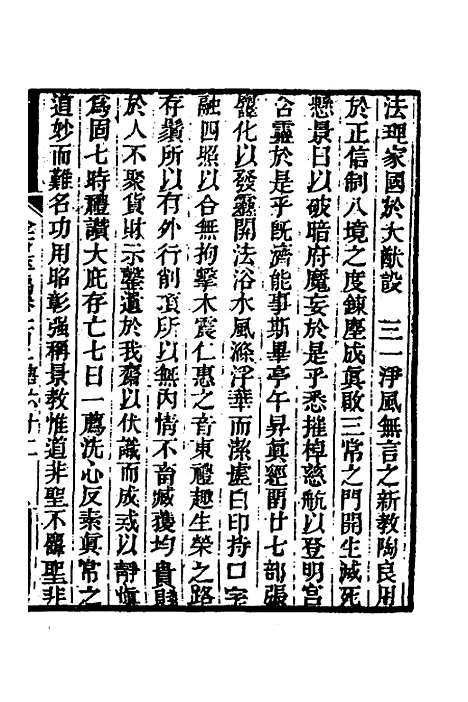 法理家國於大猷設　三一淨風無言之新教陶良用
於正信制八境之度鍊塵成眞啟三常之門開生滅死
懸景日以破暗府魔妄於是乎悉摧棹慈航以登明宫
含靈於是乎旣濟能事斯畢亭午昇眞經畱廿七部張
元化以發靈關法浴水風滌浮華而潔虛白印持十字
融四照以合無拘擊木震仁惠之音東禮趣生榮之路
存鬚所以有外行削頂所以無内情不畜臧獲均貴賤
於人不聚貨財示罄遺於我齋以伏識而成戒以靜愼
爲固七時禮讚大庇存亡七日一薦洗心反素眞常之
道妙而難名功用昭彰强稱景教惟道非聖不𢎞聖非